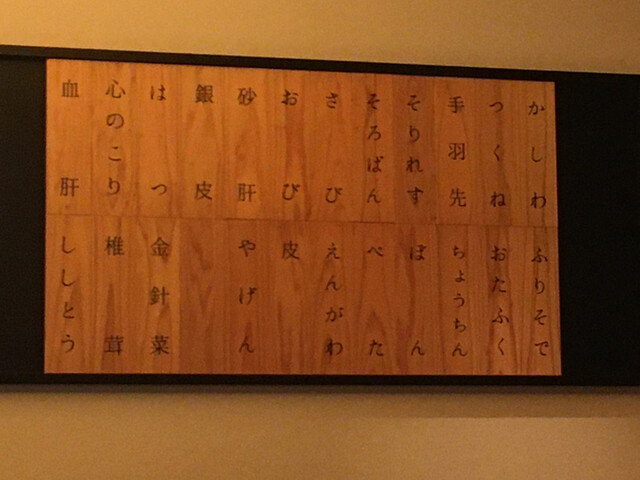 かしわ
つくね
手羽先
そりれす
そろばん
さび
おび
砂肝
銀皮
はつ
心のこり
血肝
ふりそで
おたふく
ちょうちん
ぼん
べた
えんがわ
皮
やげん
金針菜
椎茸
ししとう